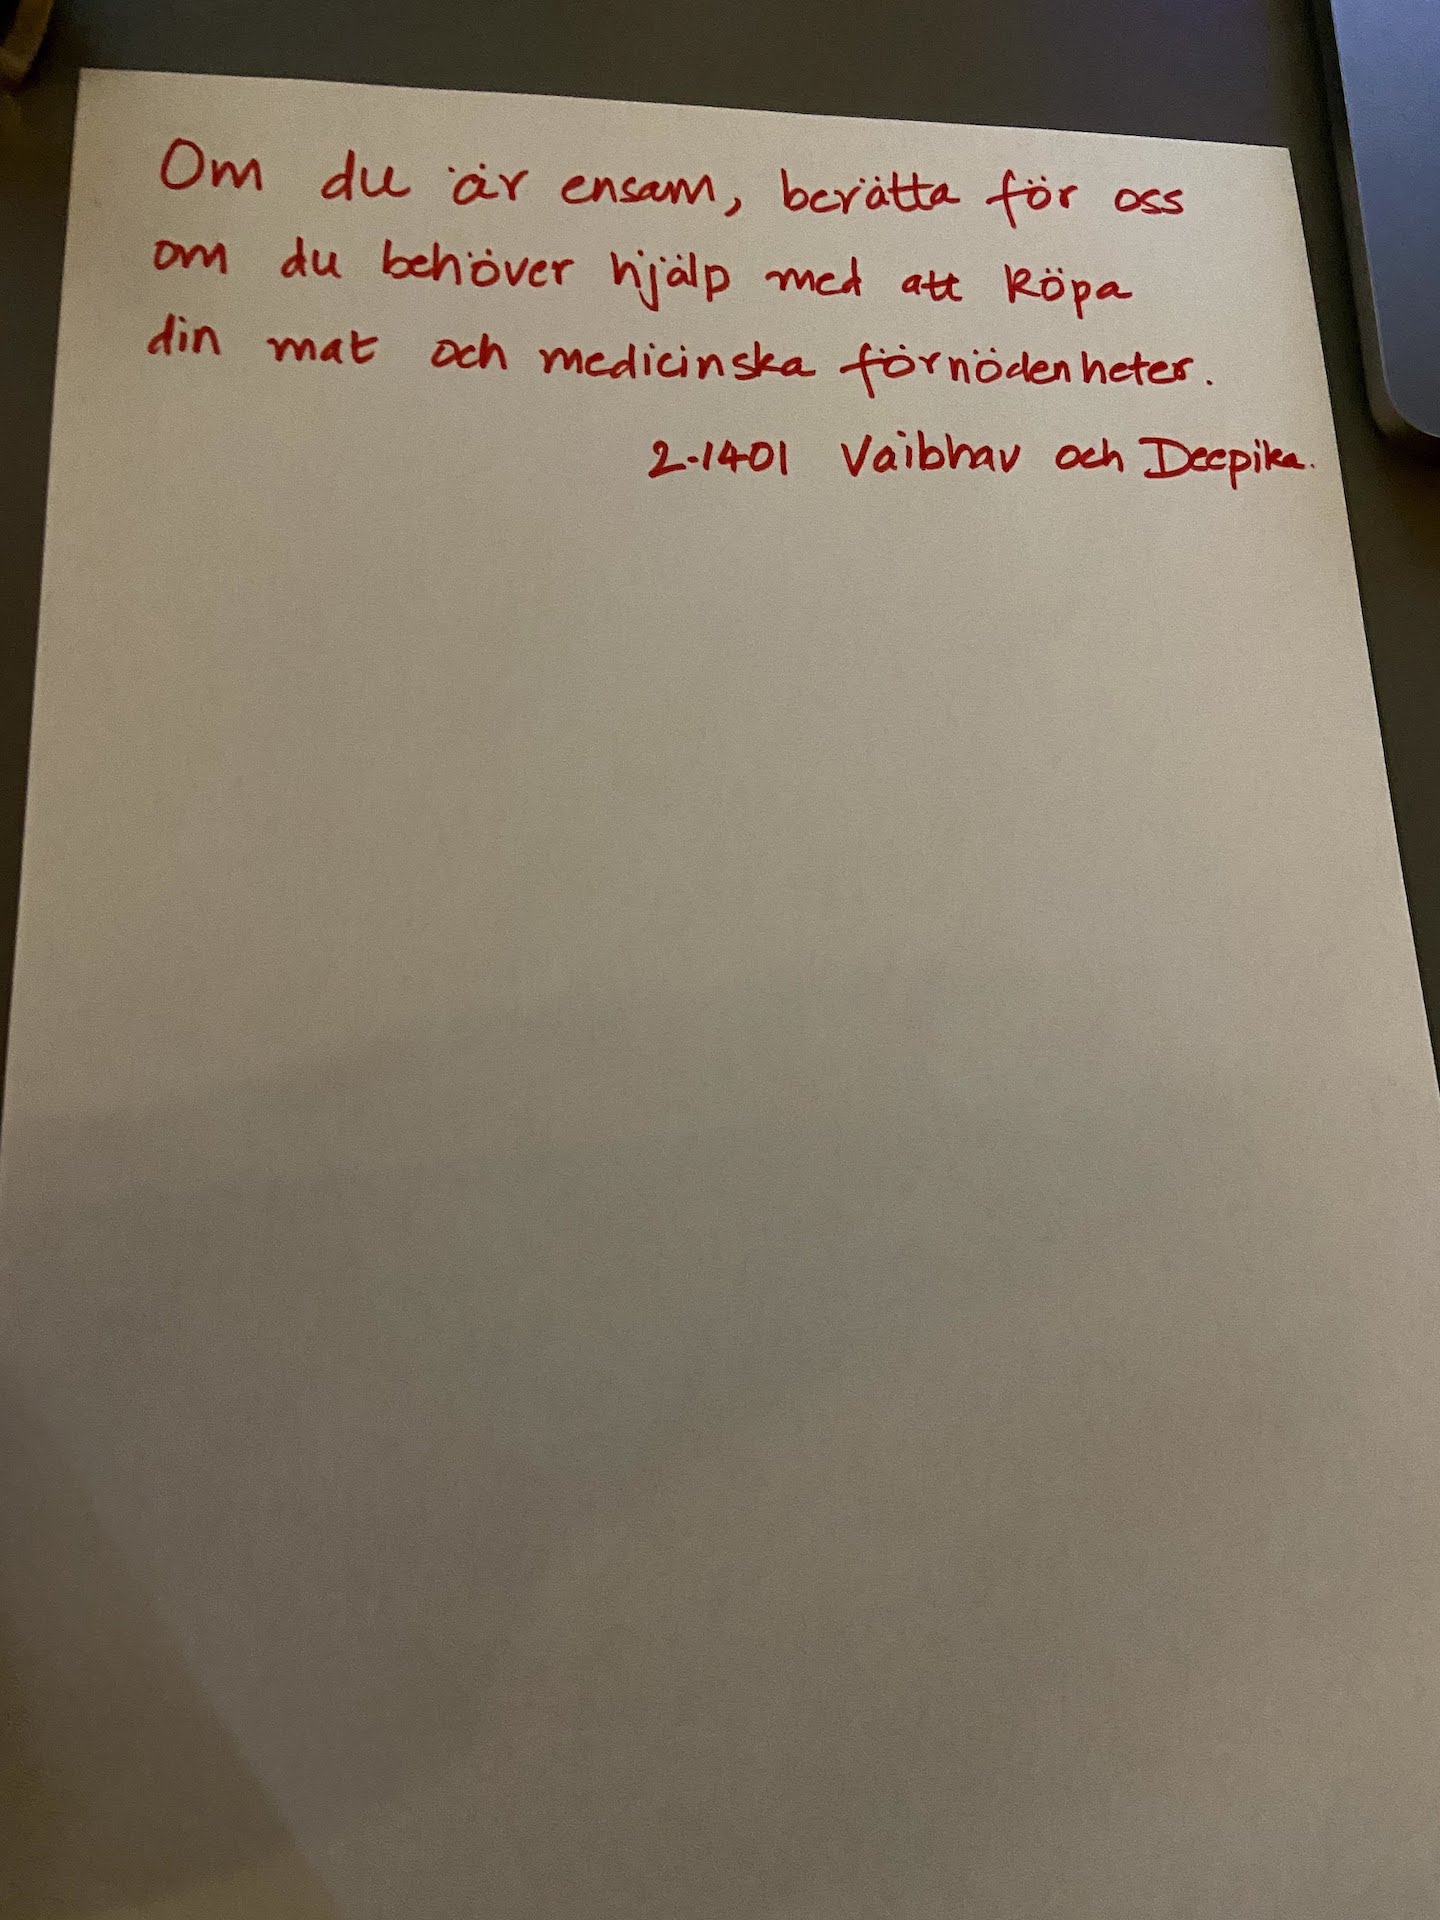 Om du är ensam, berätta för oss
om du behöver hjälp med att köpa
din mat och medicinska förnödenheter.
2-1401 Vaibhav och Deepika.